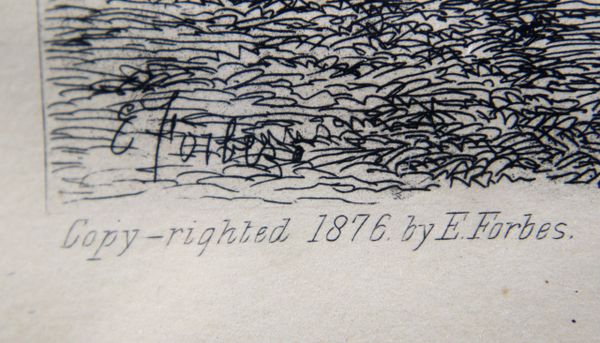 E Forbes
Copy-righted 1876. by E. Forbes.